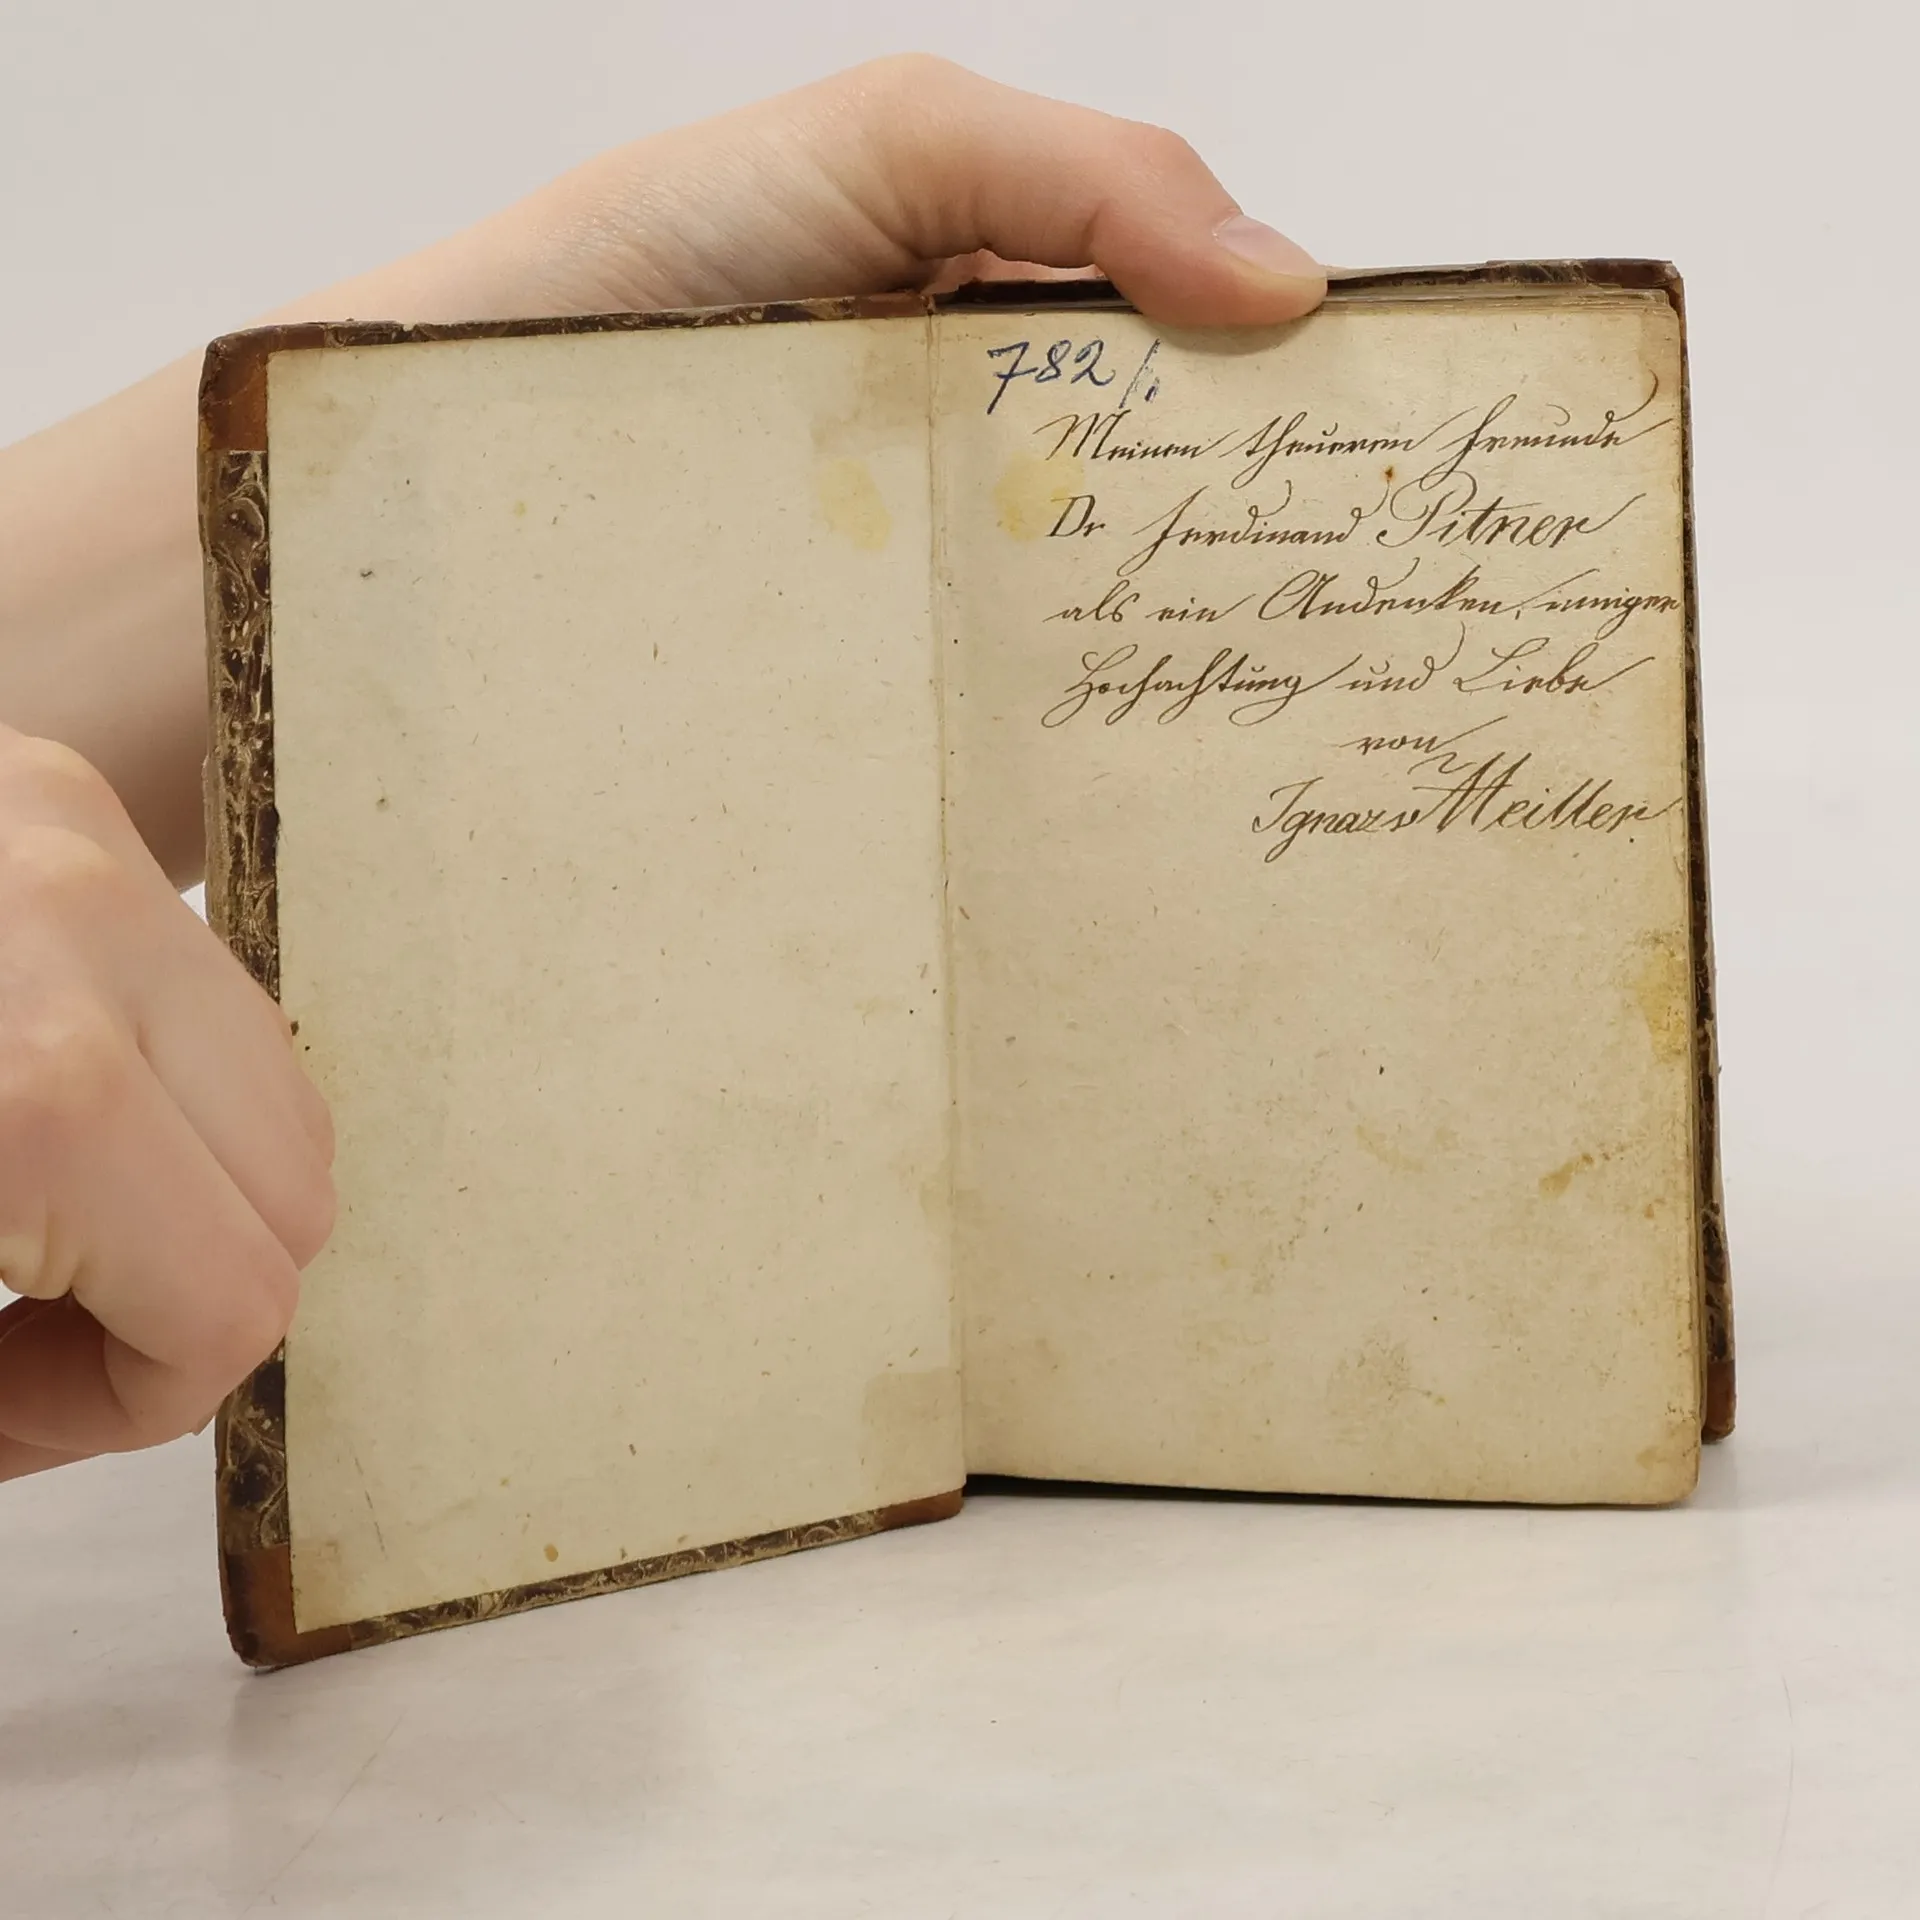 782/1.
Meinem theueren Freunde
Dr Ferdinand Pitner
als ein Andenken, inniger
Hochachtung und Liebe
von
Ignaz v Meiller.